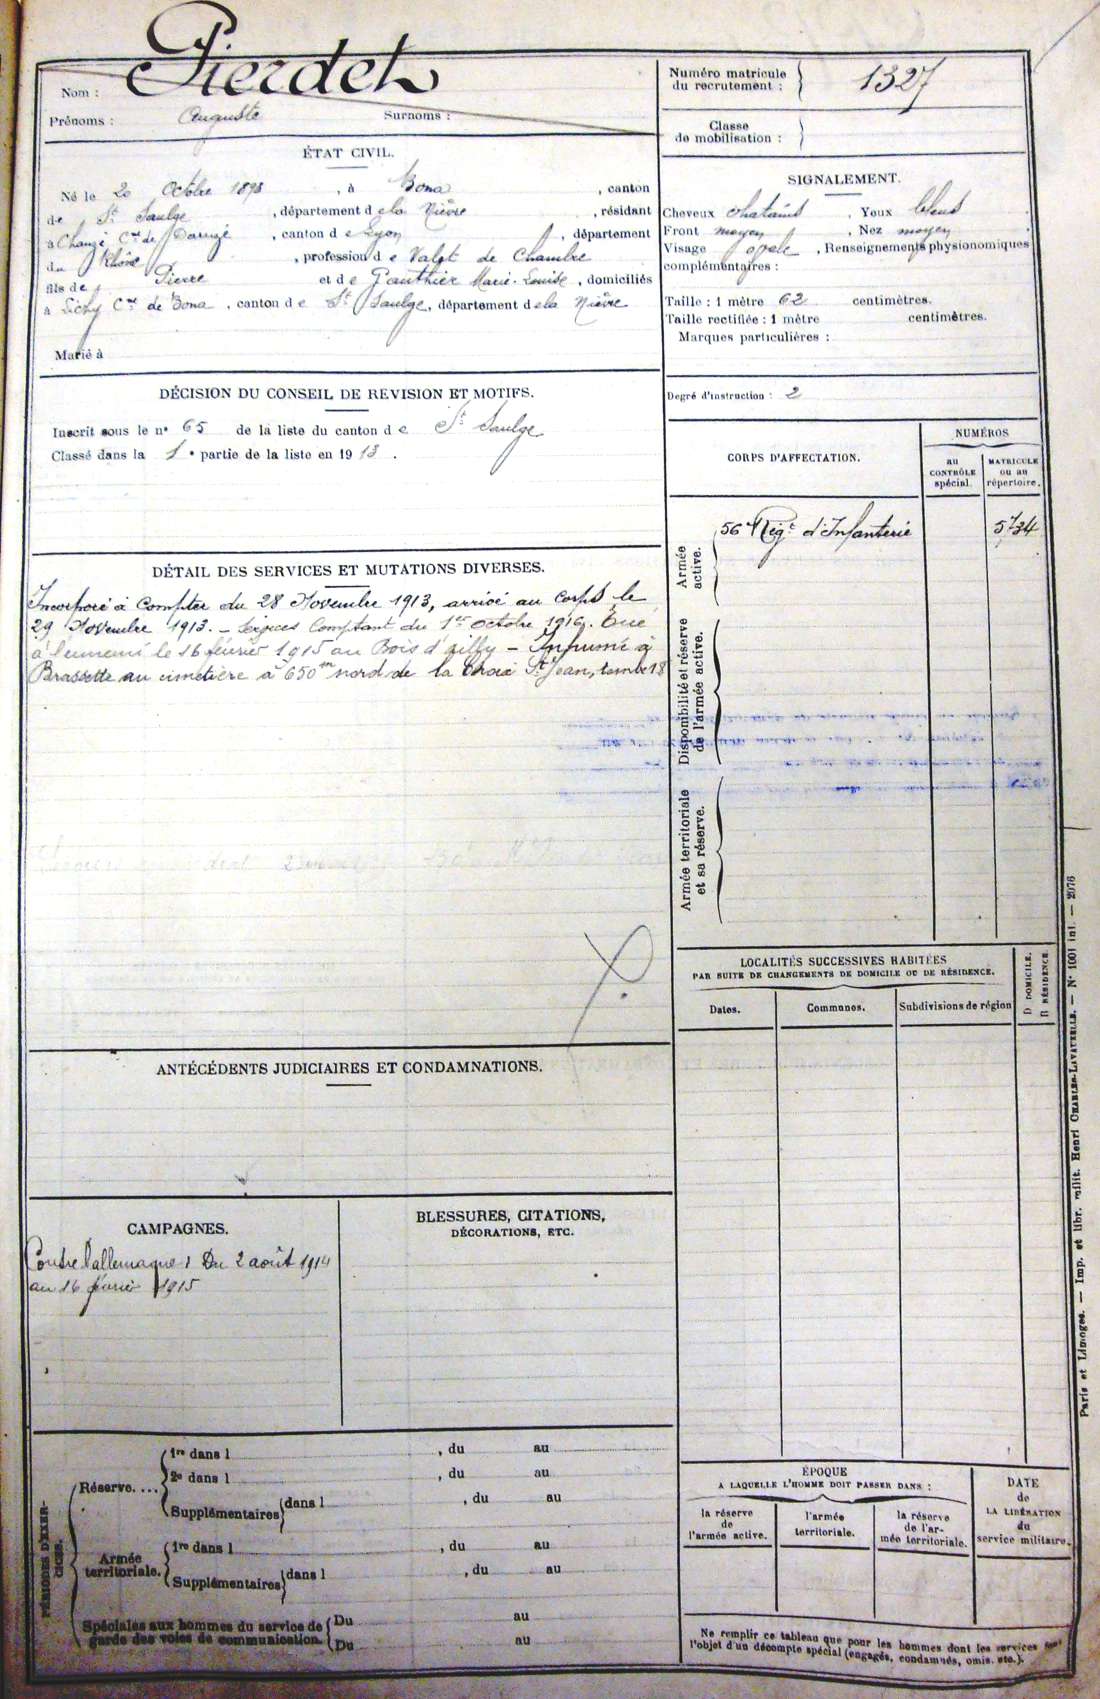 Nom : Pierdet
Prénoms : Auguste Surnoms :
Numéro matricule du recrutement : 1327
Classe de mobilisation :
ÉTAT CIVIL.
Né le 20 Octobre 1893, à Bona, canton
de St Saulge, département de la Nièvre, résidant
à Cne de, canton de Lyon, département
du Rhône, profession de Valet de Chambre
fils de Pierre et de Gauthier Marie-Louise, domiciliés
à Lichy Cne de Bona, canton de St Saulge, département de la Nièvre
Marié à
SIGNALEMENT.
Cheveux chatains, Yeux bleus
Front moyen, Nez moyen
Visage ovale, Renseignements physionomiques
complémentaires :
Taille : 1 mètre 62 centimètres.
Taille rectifiée : 1 mètre centimètres.
Marques particulières :
Degré d'instruction : 2
DÉCISION DU CONSEIL DE REVISION ET MOTIFS.
Inscrit sous le n° 65 de la liste du canton de St Saulge
Classé dans la 1e partie de la liste en 1913.
CORPS D'AFFECTATION.
NUMÉROS
au CONTRÔLE spécial.
MATRICULE ou au répertoire.
Armée active.
56e Régt d'Infanterie 5734
Disponibilité et réserve de l'armée active.
Armée territoriale et sa réserve.
DÉTAIL DES SERVICES ET MUTATIONS DIVERSES.
Incorporé à compter du 28 Novembre 1913, arrivé au corps le
29 Novembre 1913. – Services Comptant du 1er Octobre 1913. Tué
à l'ennemi le 16 février 1915 au Bois d'ailly – Inhumé à
Brassette au cimetière à 650m nord de la Croix St Jean, tombe 18
LOCALITÉS SUCCESSIVES HABITÉES
PAR SUITE DE CHANGEMENTS DE DOMICILE OU DE RÉSIDENCE.
Dates.
Communes.
Subdivisions de région
D DOMICILE.
R RÉSIDENCE.
ANTÉCÉDENTS JUDICIAIRES ET CONDAMNATIONS.
CAMPAGNES.
Contre l'allemagne : Du 2 août 1914
au 16 février 1915
BLESSURES, CITATIONS,
DÉCORATIONS, ETC.
PÉRIODES D'EXERCICES.
Réserve....
1re dans l , du au
2e dans l , du au
Supplémentaires dans l , du au
Armée territoriale.
1re dans l , du au
Supplémentaires dans l , du au
Spéciales aux hommes du service de garde des voies de communication.
Du au
Du au
ÉPOQUE
A LAQUELLE L'HOMME DOIT PASSER DANS :
la réserve de l'armée active.
l'armée territoriale.
la réserve de l'armée territoriale.
DATE de LA LIBÉRATION du service militaire.
Ne remplir ce tableau que pour les hommes dont les services font
l'objet d'un décompte spécial (engagés, condamnés, omis, etc.).
Paris et Limoges. — Imp. et libr. milit. Henri CHARLES-LAVAUZELLE. — N° 1001 int. — 2076